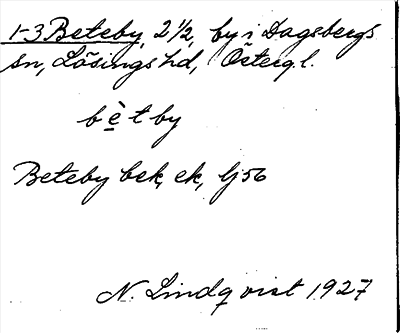 1-3 Beteby, 2 1/2, by i Dagsbergs
sn, Lösings hd, Östergl.
bè̱tby
Beteby bek, ek, lj 56
N. Lindqvist 1927